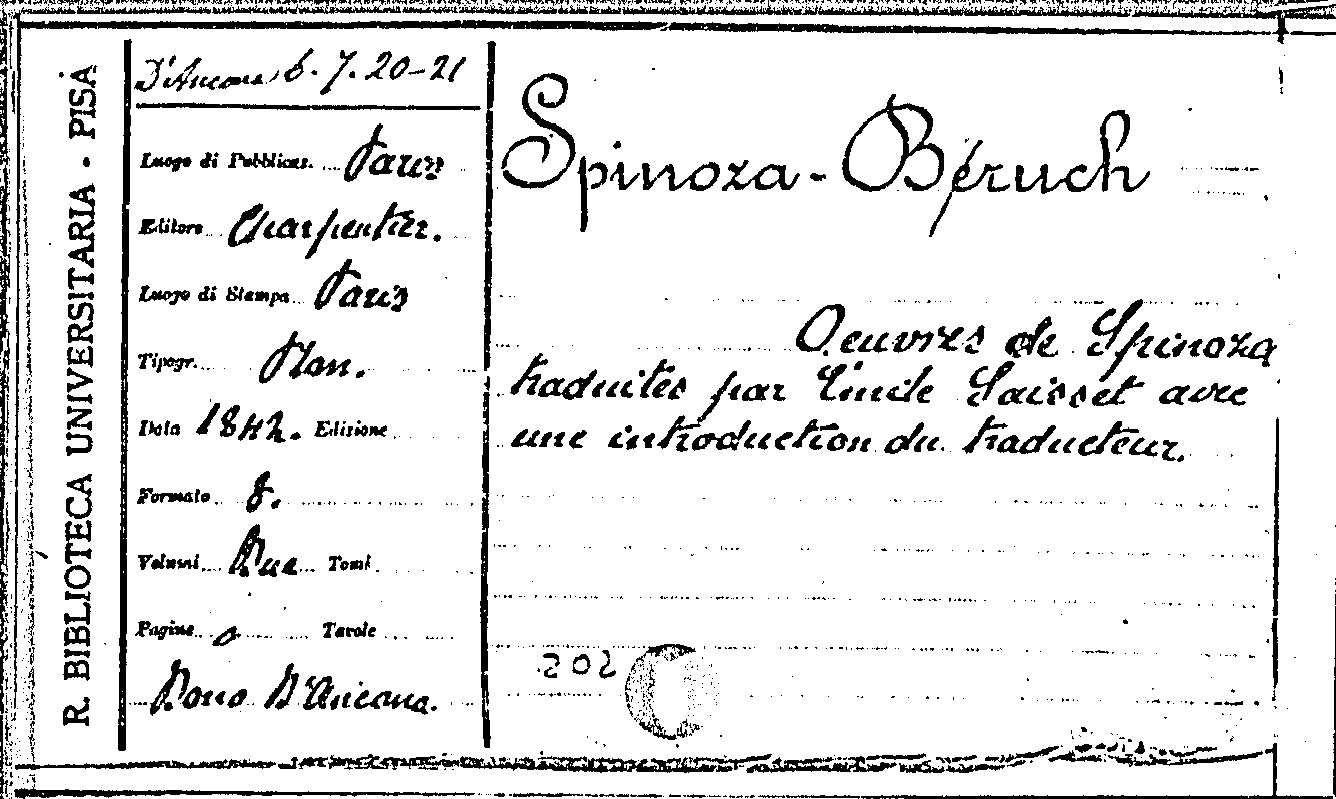 R. BIBLIOTECA UNIVERSITARIA - PISA
D'Ancona 6. 7. 20-21
Luogo di Pubblicaz. Paris
Editore Charpentier.
Luogo di Stampa Paris
Tipogr. Plon.
Data 1842. Edizione
Formato 8.
Volumi Due Tomi
Pagine o Tavole
Dono D'Ancona.
Spinoza - Béruch
Oeuvres de Spinoza
traduites par Emile Saisset avec
une introduction du traducteur.
202